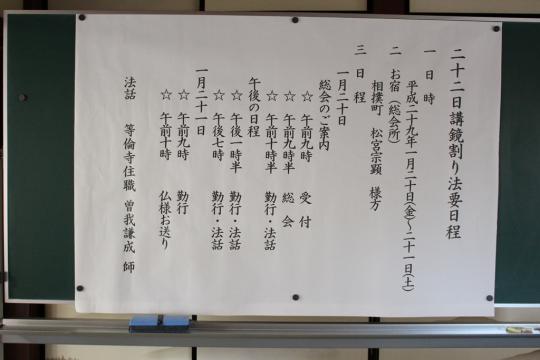 二十二日講鏡割り法要日程
一 日 時
平成二十九年一月二十日(金)~二十一日(土)
二 お宿（総会所）
相撲町 松宮宗顕 様方
三 日 程
一月二十日
総会のご案内
☆ 午前九時 受 付
☆ 午前九時半 総 会
☆ 午前十時 勤行・法話
午後の日程
☆ 午後一時半 勤行・法話
☆ 午後七時 勤行・法話
一月二十一日
☆ 午前九時 勤行
☆ 午前十時 仏様お送り
法話 等倫寺住職 曽我謙成 師